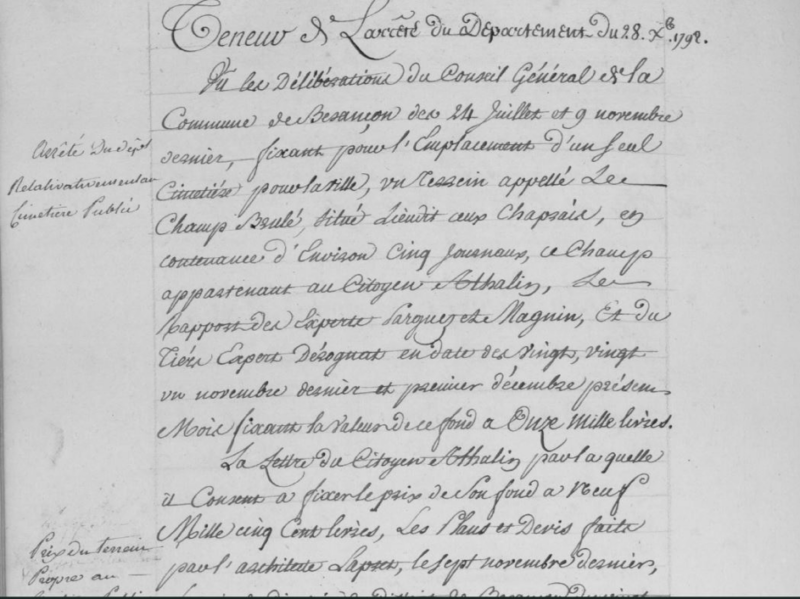 Teneur de L'arrêté du Département du 28. Xb. 1792.
Vu les Délibérations du Conseil Général de la
Commune de Besançon des 24 Juillet et 9 novembre
dernier, fixant pour l'Emplacement d'un seul
Cimetière pour la ville, un Terrein appellé Le
Champ Brulé, situé Lieudit aux Chaprais, en
contenance d'Environ Cinq Journaux, ce Champ
appartenant au Citoyen Athalin, Le
Rapport des Experts Parguez et Magnin, Et du
Tiers Expert Dérognat en date des vingt, vingt
un novembre dernier et premier décembre présent
Mois fixant la valeur de ce fond a Onze Mille livres.
La Lettre du Citoyen Athalin par la quelle
il Consent a fixer le prix de son fond a Neuf
Mille cinq Cent livres, Les Plans et Devis faits
par l'architecte Lapret, le sept novembre dernier,
Arrêté Du dépt
Relativement au
Cimetière Public
Prix du terrein
Propre au